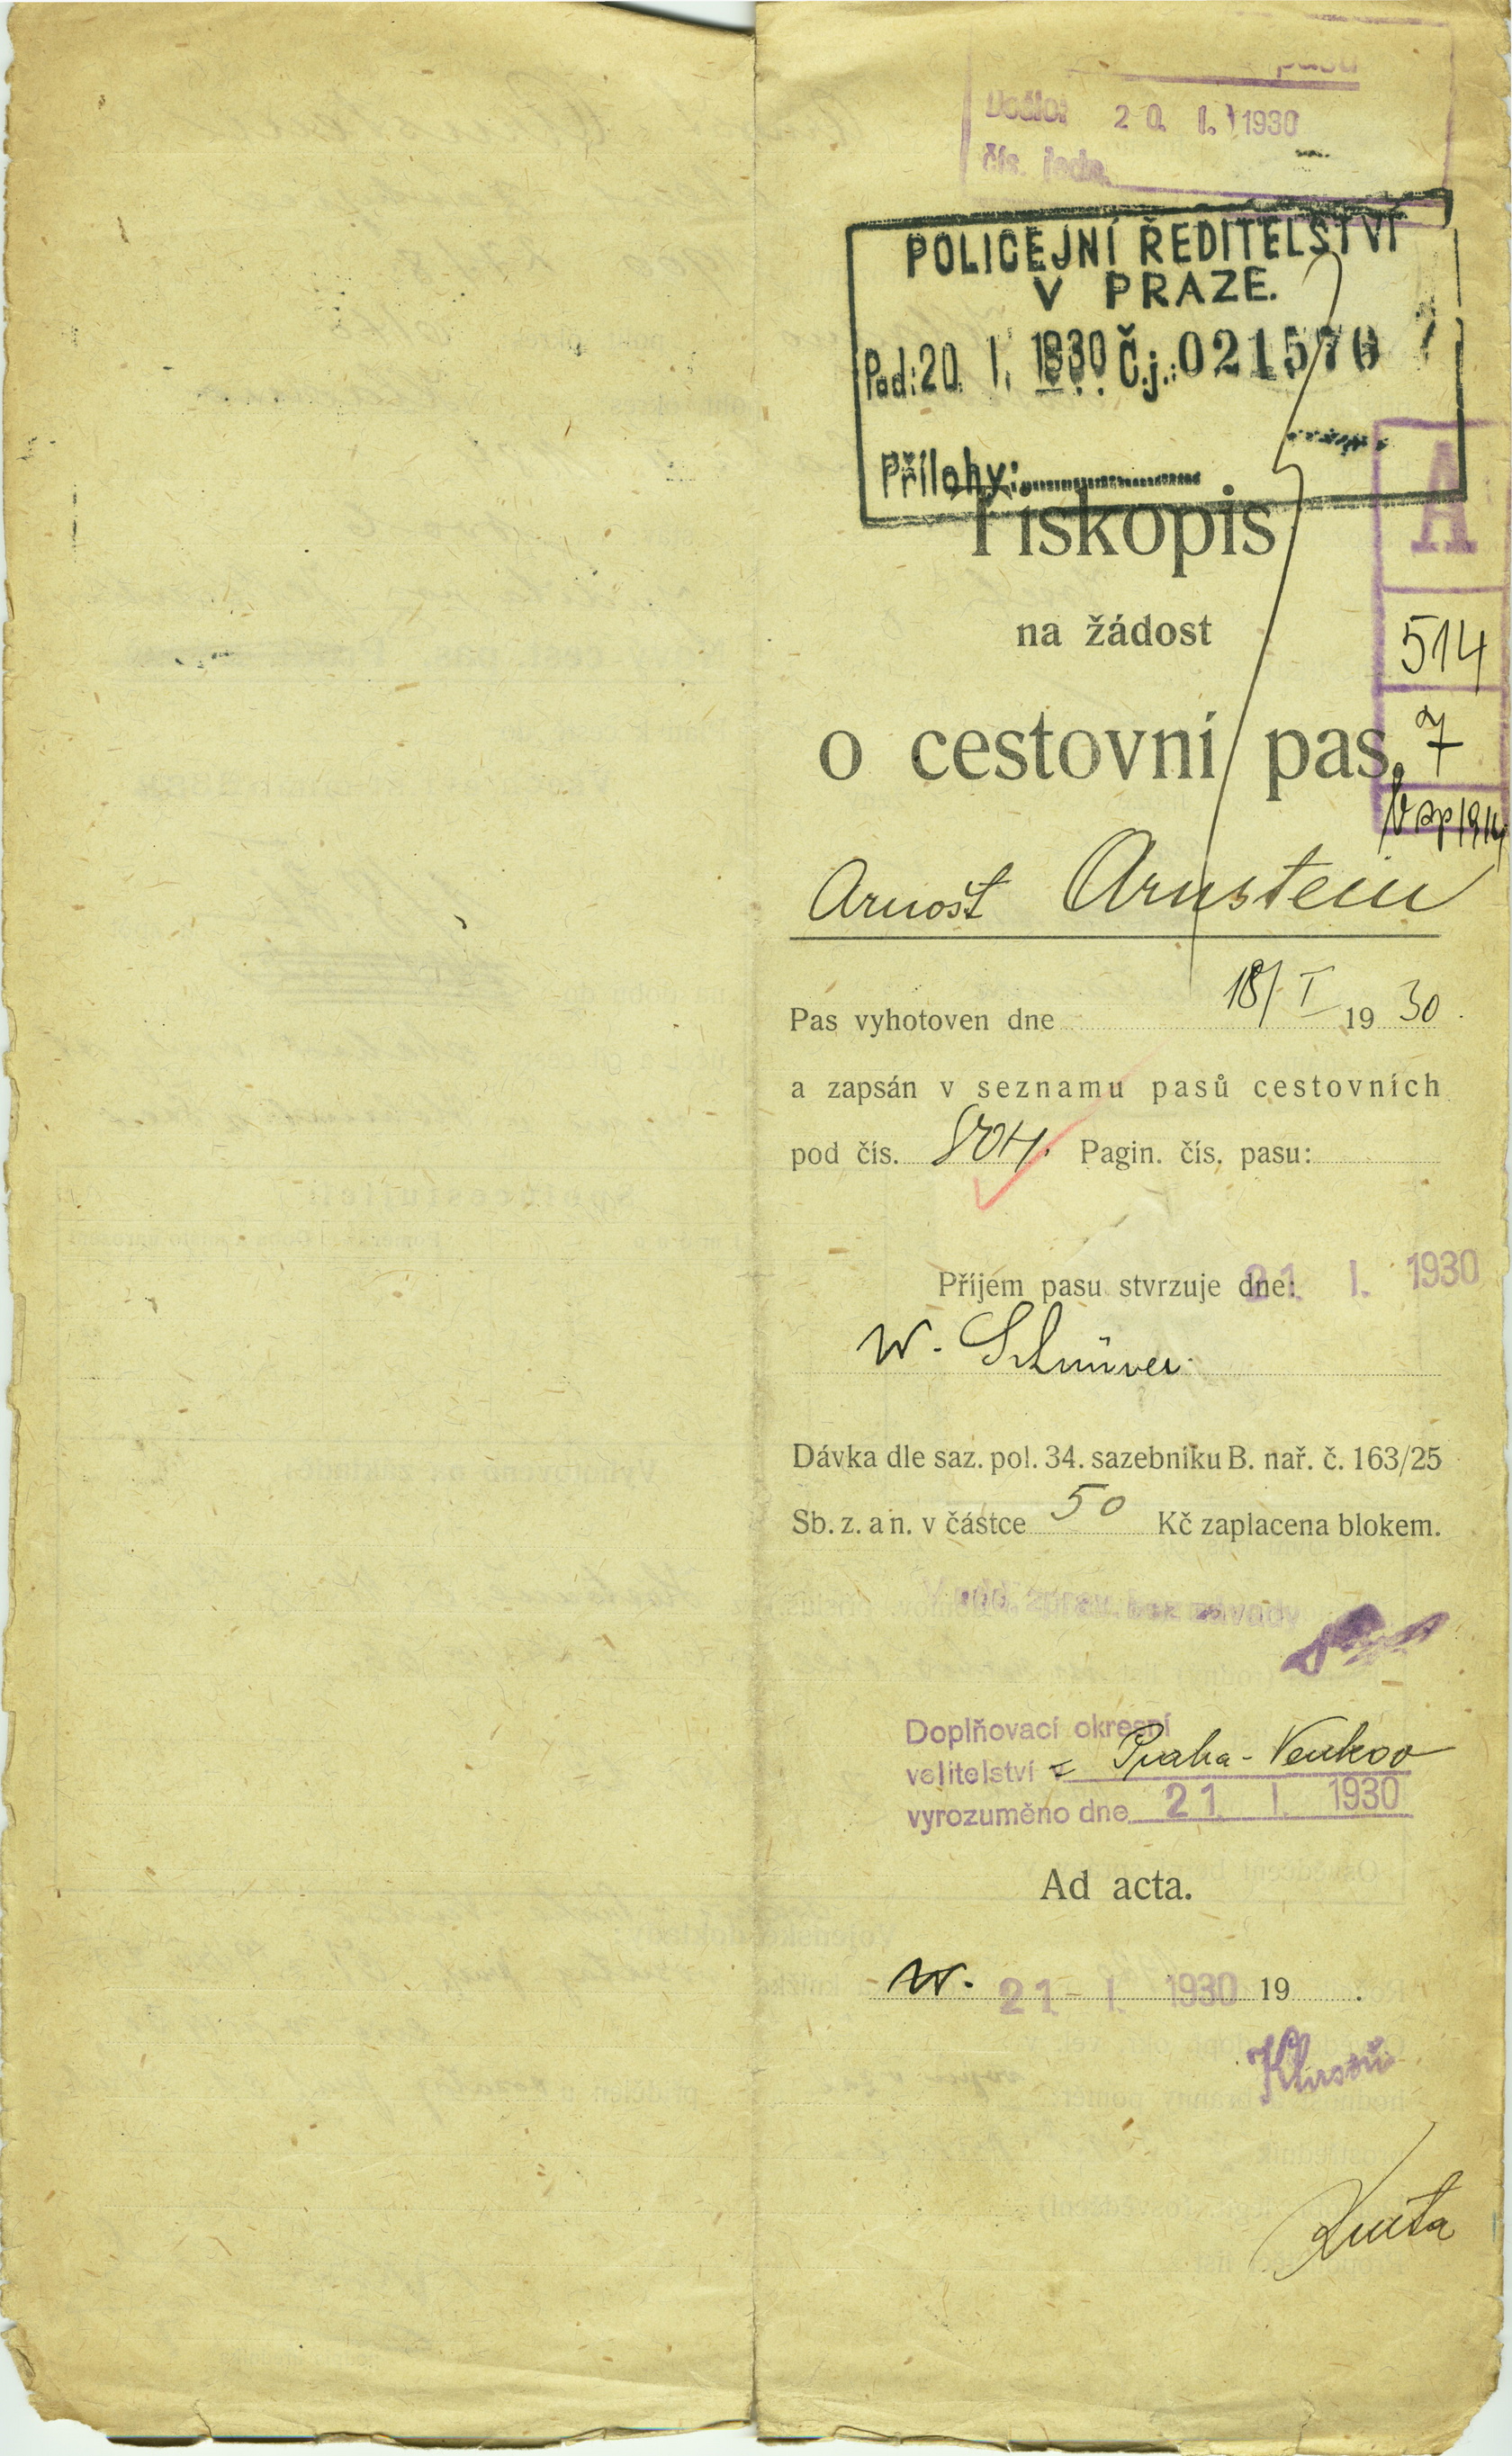 pasů
Došlo: 20. I. 1930
čís. řada
POLICEJNÍ ŘEDITELSTVÍ
V PRAZE.
Pod: 20. I. 1930 Č.j.: 021576
Přílohy:
A
514
7
Tiskopis
na žádost
o cestovní pas.
Arnošt Arnstein
Pas vyhotoven dne 18/I 19 30.
a zapsán v seznamu pasů cestovních
pod čís. 804. Pagin. čís. pasu:
Příjem pasu stvrzuje dne: 21. I. 1930
W.
Dávka dle saz. pol. 34. sazebníku B. nař. č. 163/25
Sb. z. a n. v částce 50 Kč zaplacena blokem.
Doplňovací okresní
velitelství z Praha-Venkov
vyrozuměno dne 21. I. 1930
Ad acta.
W. 21. I. 1930 19 .